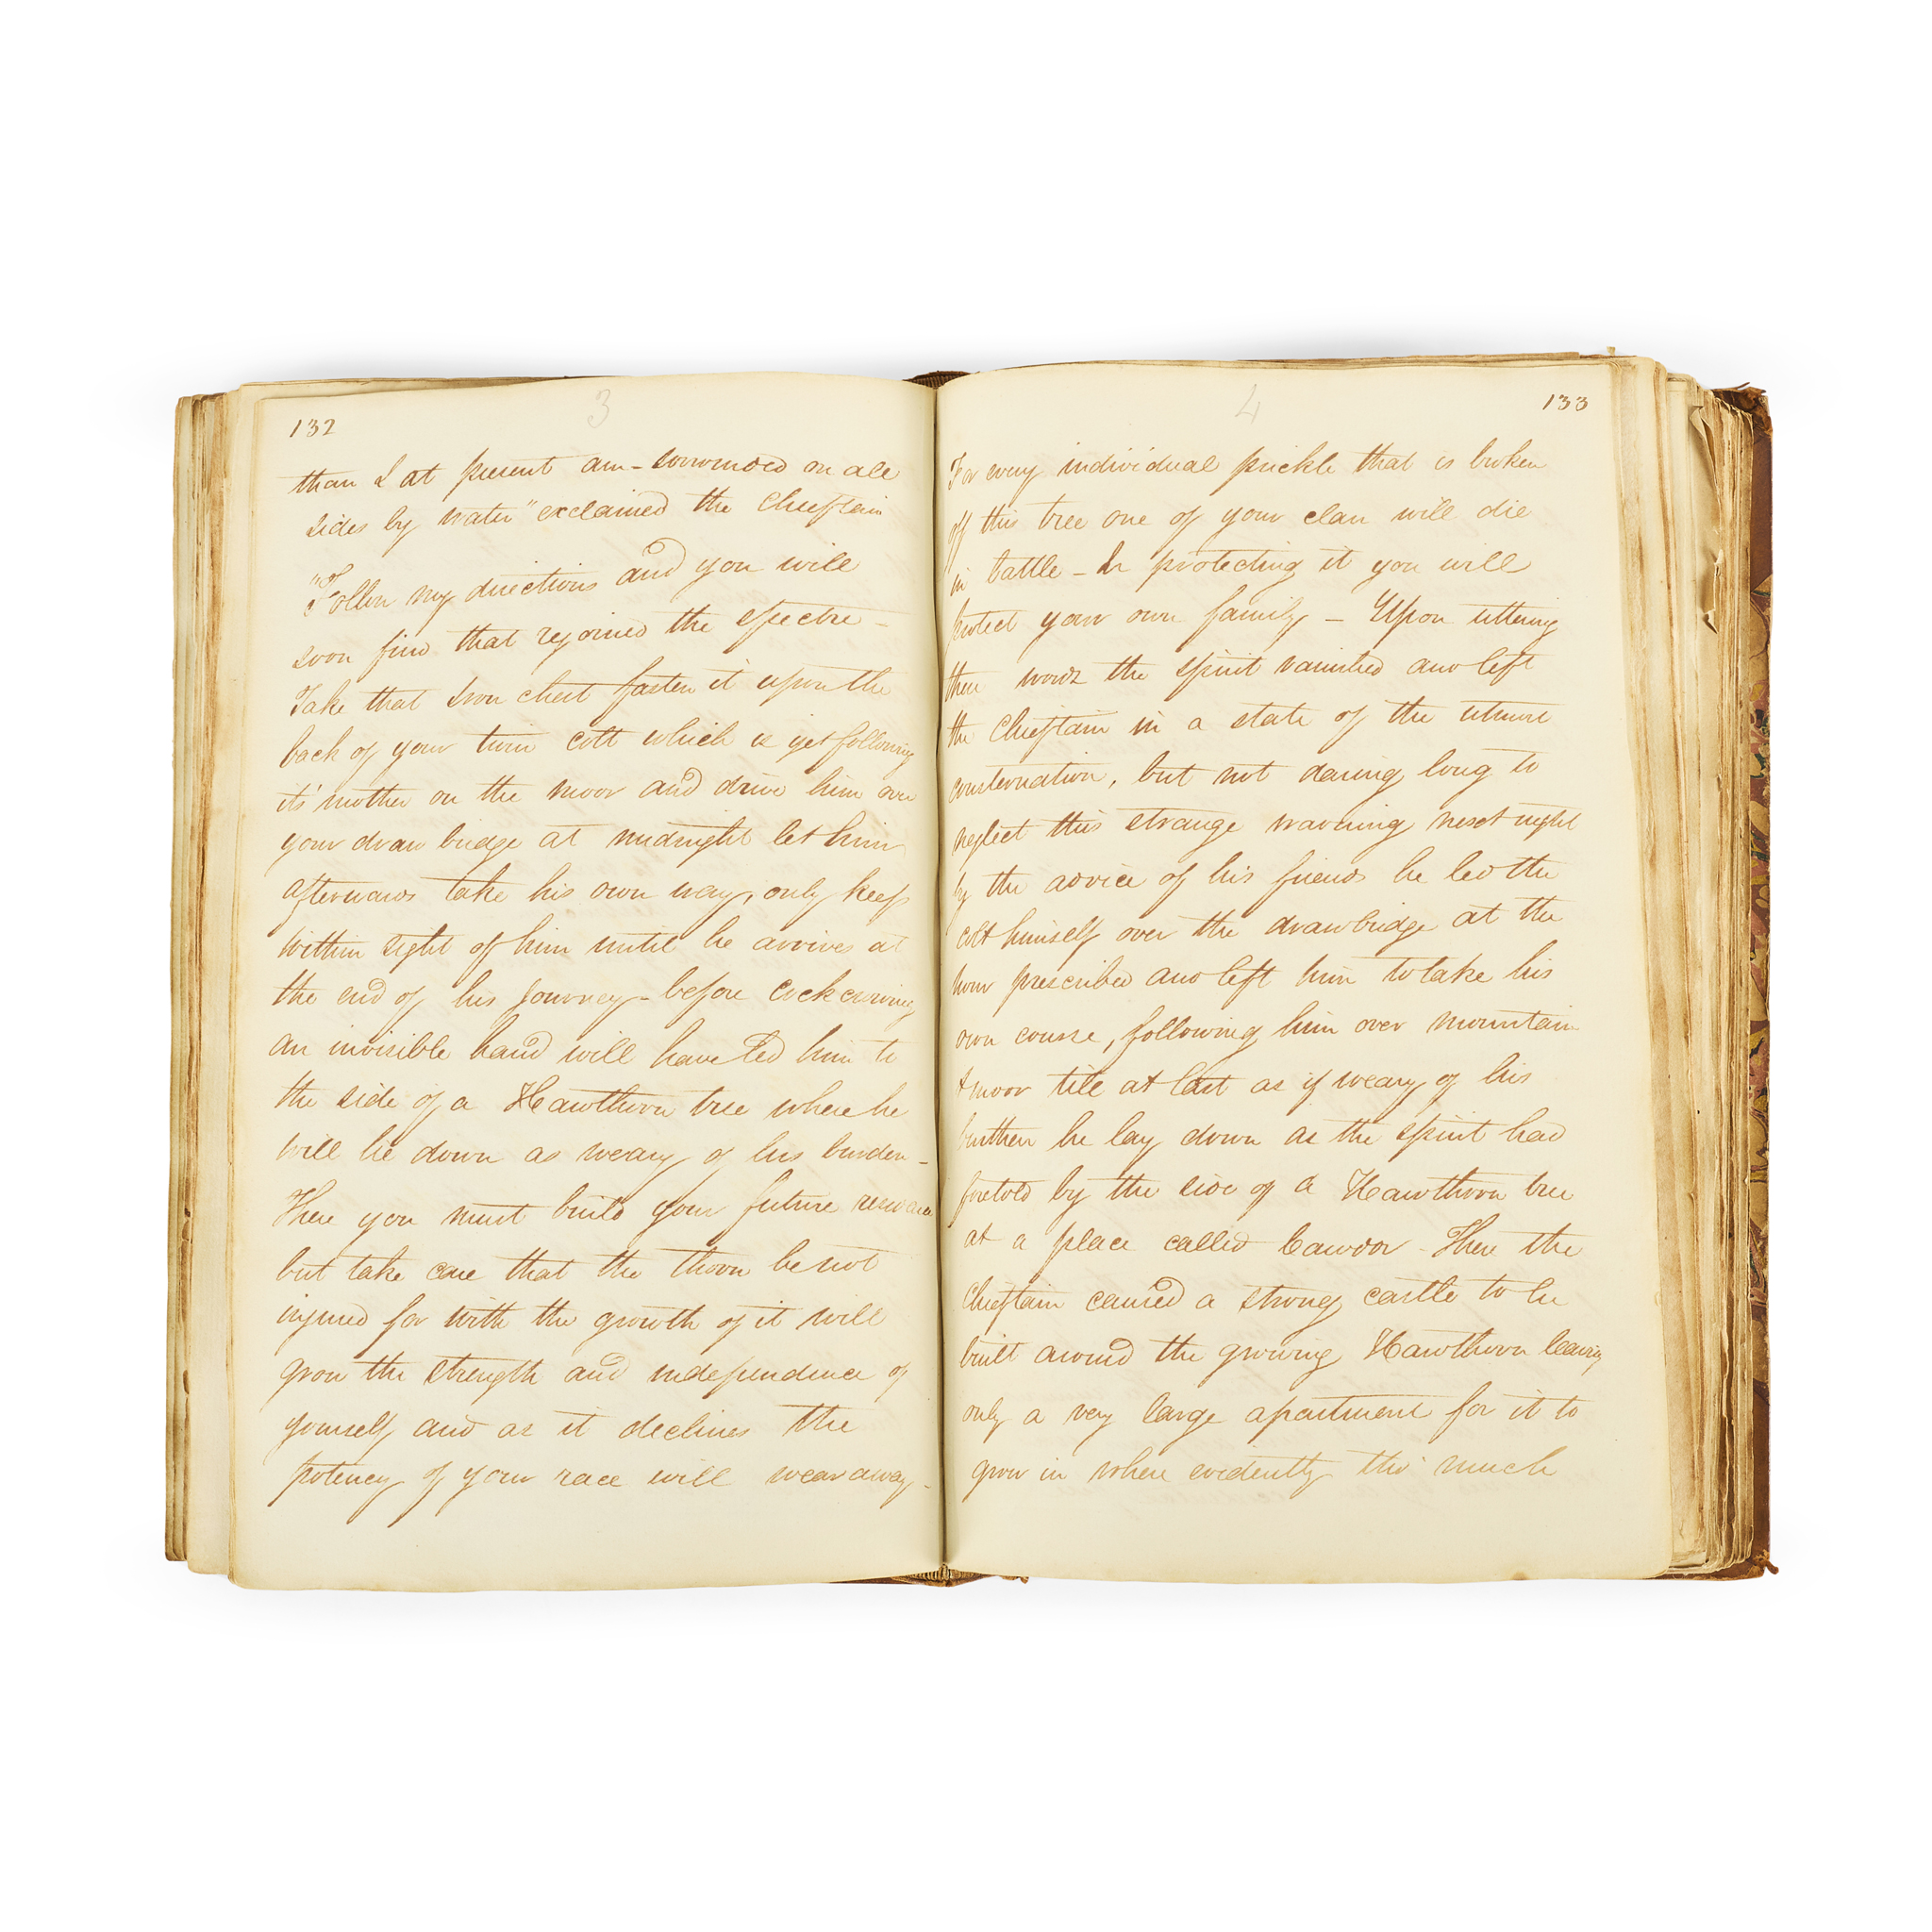 132
3
than I at present am - surrounded on all
sides by water" exclaimed the Chieftain
"Follow my directions and you will
soon find that rejoined the spectre -
Take that Iron chest fasten it upon the
back of your twin colt which is yet following
its' mother on the moor and drive him over
your draw bridge at midnight let him
afterwards take his own way, only keep
within sight of him until he arrives at
the end of his Journey - before cockcrowing
an invisible hand will have led him to
the side of a Hawthorn tree where he
will lie down as weary of his burden -
There you must build your future residence
but take care that the thorn be not
injured for with the growth of it will
grow the strength and independence of
yourself and as it declines the
potency of your race will wear away -
4
133
For every individual prickle that is broken
off this tree one of your clan will die
in battle - In protecting it you will
protect your own family - Upon uttering
these words the spirit vanished and left
the Chieftain in a state of the utmost
consternation, but not daring long to
neglect this strange warning next night
by the advice of his friends he led the
colt himself over the drawbridge at the
hour prescribed and left him to take his
own course, following him over mountain
& moor till at last as if weary of his
burthen he lay down as the spirit had
foretold by the side of a Hawthorn tree
at a place called Cawdor - There the
Chieftain caused a strong castle to be
built around the growing Hawthorn leaving
only a very large apartment for it to
grow in where evidently tho' much